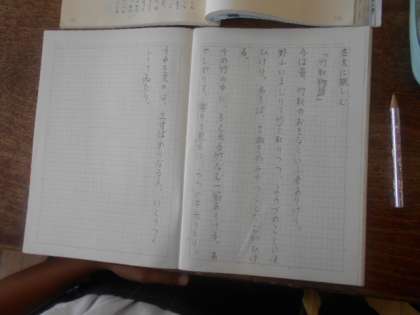 古文に親しむ
「竹取物語」
今は昔、竹取のおきなといふ者ありけり。
野山にまじりて竹を取りつつ、よろづのことに
使ひけり。名をば、さぬきのみやつことなむいひけ
る。
その竹の中に、もと光る竹なむ一筋ありける。あ
やしがりて、寄りて見るに、つつの中光りたり。
それを見れば、三寸ばかりなる人、いとうつくし
うてゐたり。